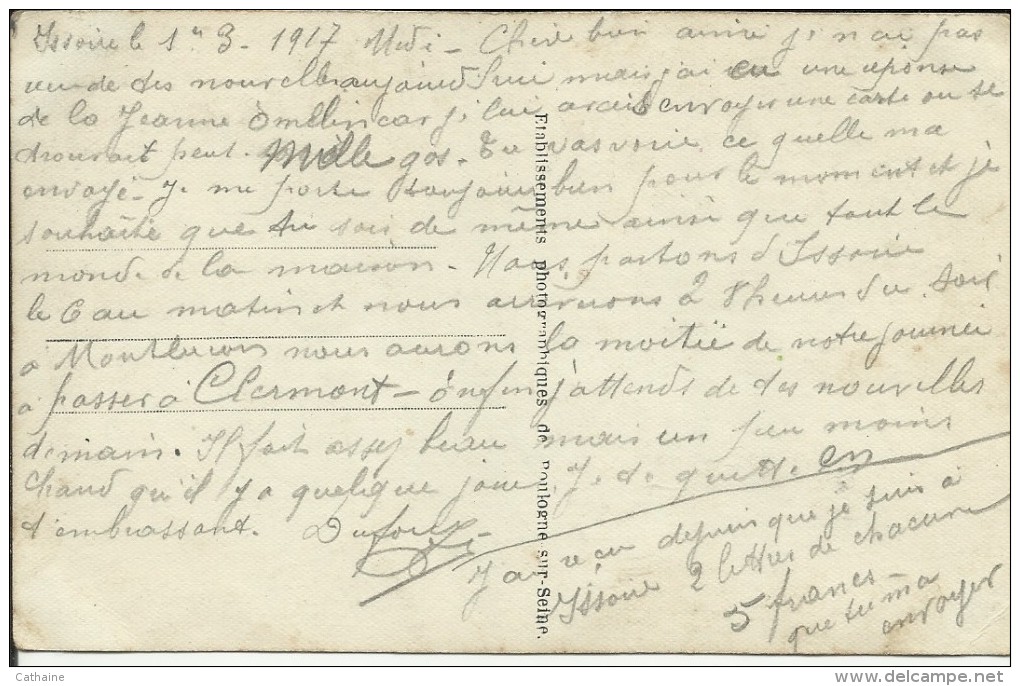 Issoire le 1er 3 - 1917 Midi - Chère bien aimé j. n'ai pas
eu de tes nouvelle aujourd'hui mais j'ai eu une réponse
de la Jeanne car je lui avait envoyer une carte ou se
trouvait peint. Mille gos. Tu vas voir ce quelle ma
envoyé - Je me porte toujours bien pour le moment et je
souhaite que tu sois de même ainsi que tout le
monde de la maison. Nous partons d'Issoire
le 6 au matin et nous arrivons à 8 heures du soir
à Montlucon nous aurons la moitié de notre journée
à passer à Clermont - Enfin j'attends de tes nouvelles
demain. Il fait assez beau mais un peu moins
chaud qu'il y a quelque jour. Je te quitte en
t'embrassant. Dufour
J'ai reçu depuis que je suis à
Issoire 2 lettres de chacune
5 francs -
que tu m'a
envoyer
Etablissements photographiques de Boulogne-sur-Seine.
Cathaine
www.delcampe.net